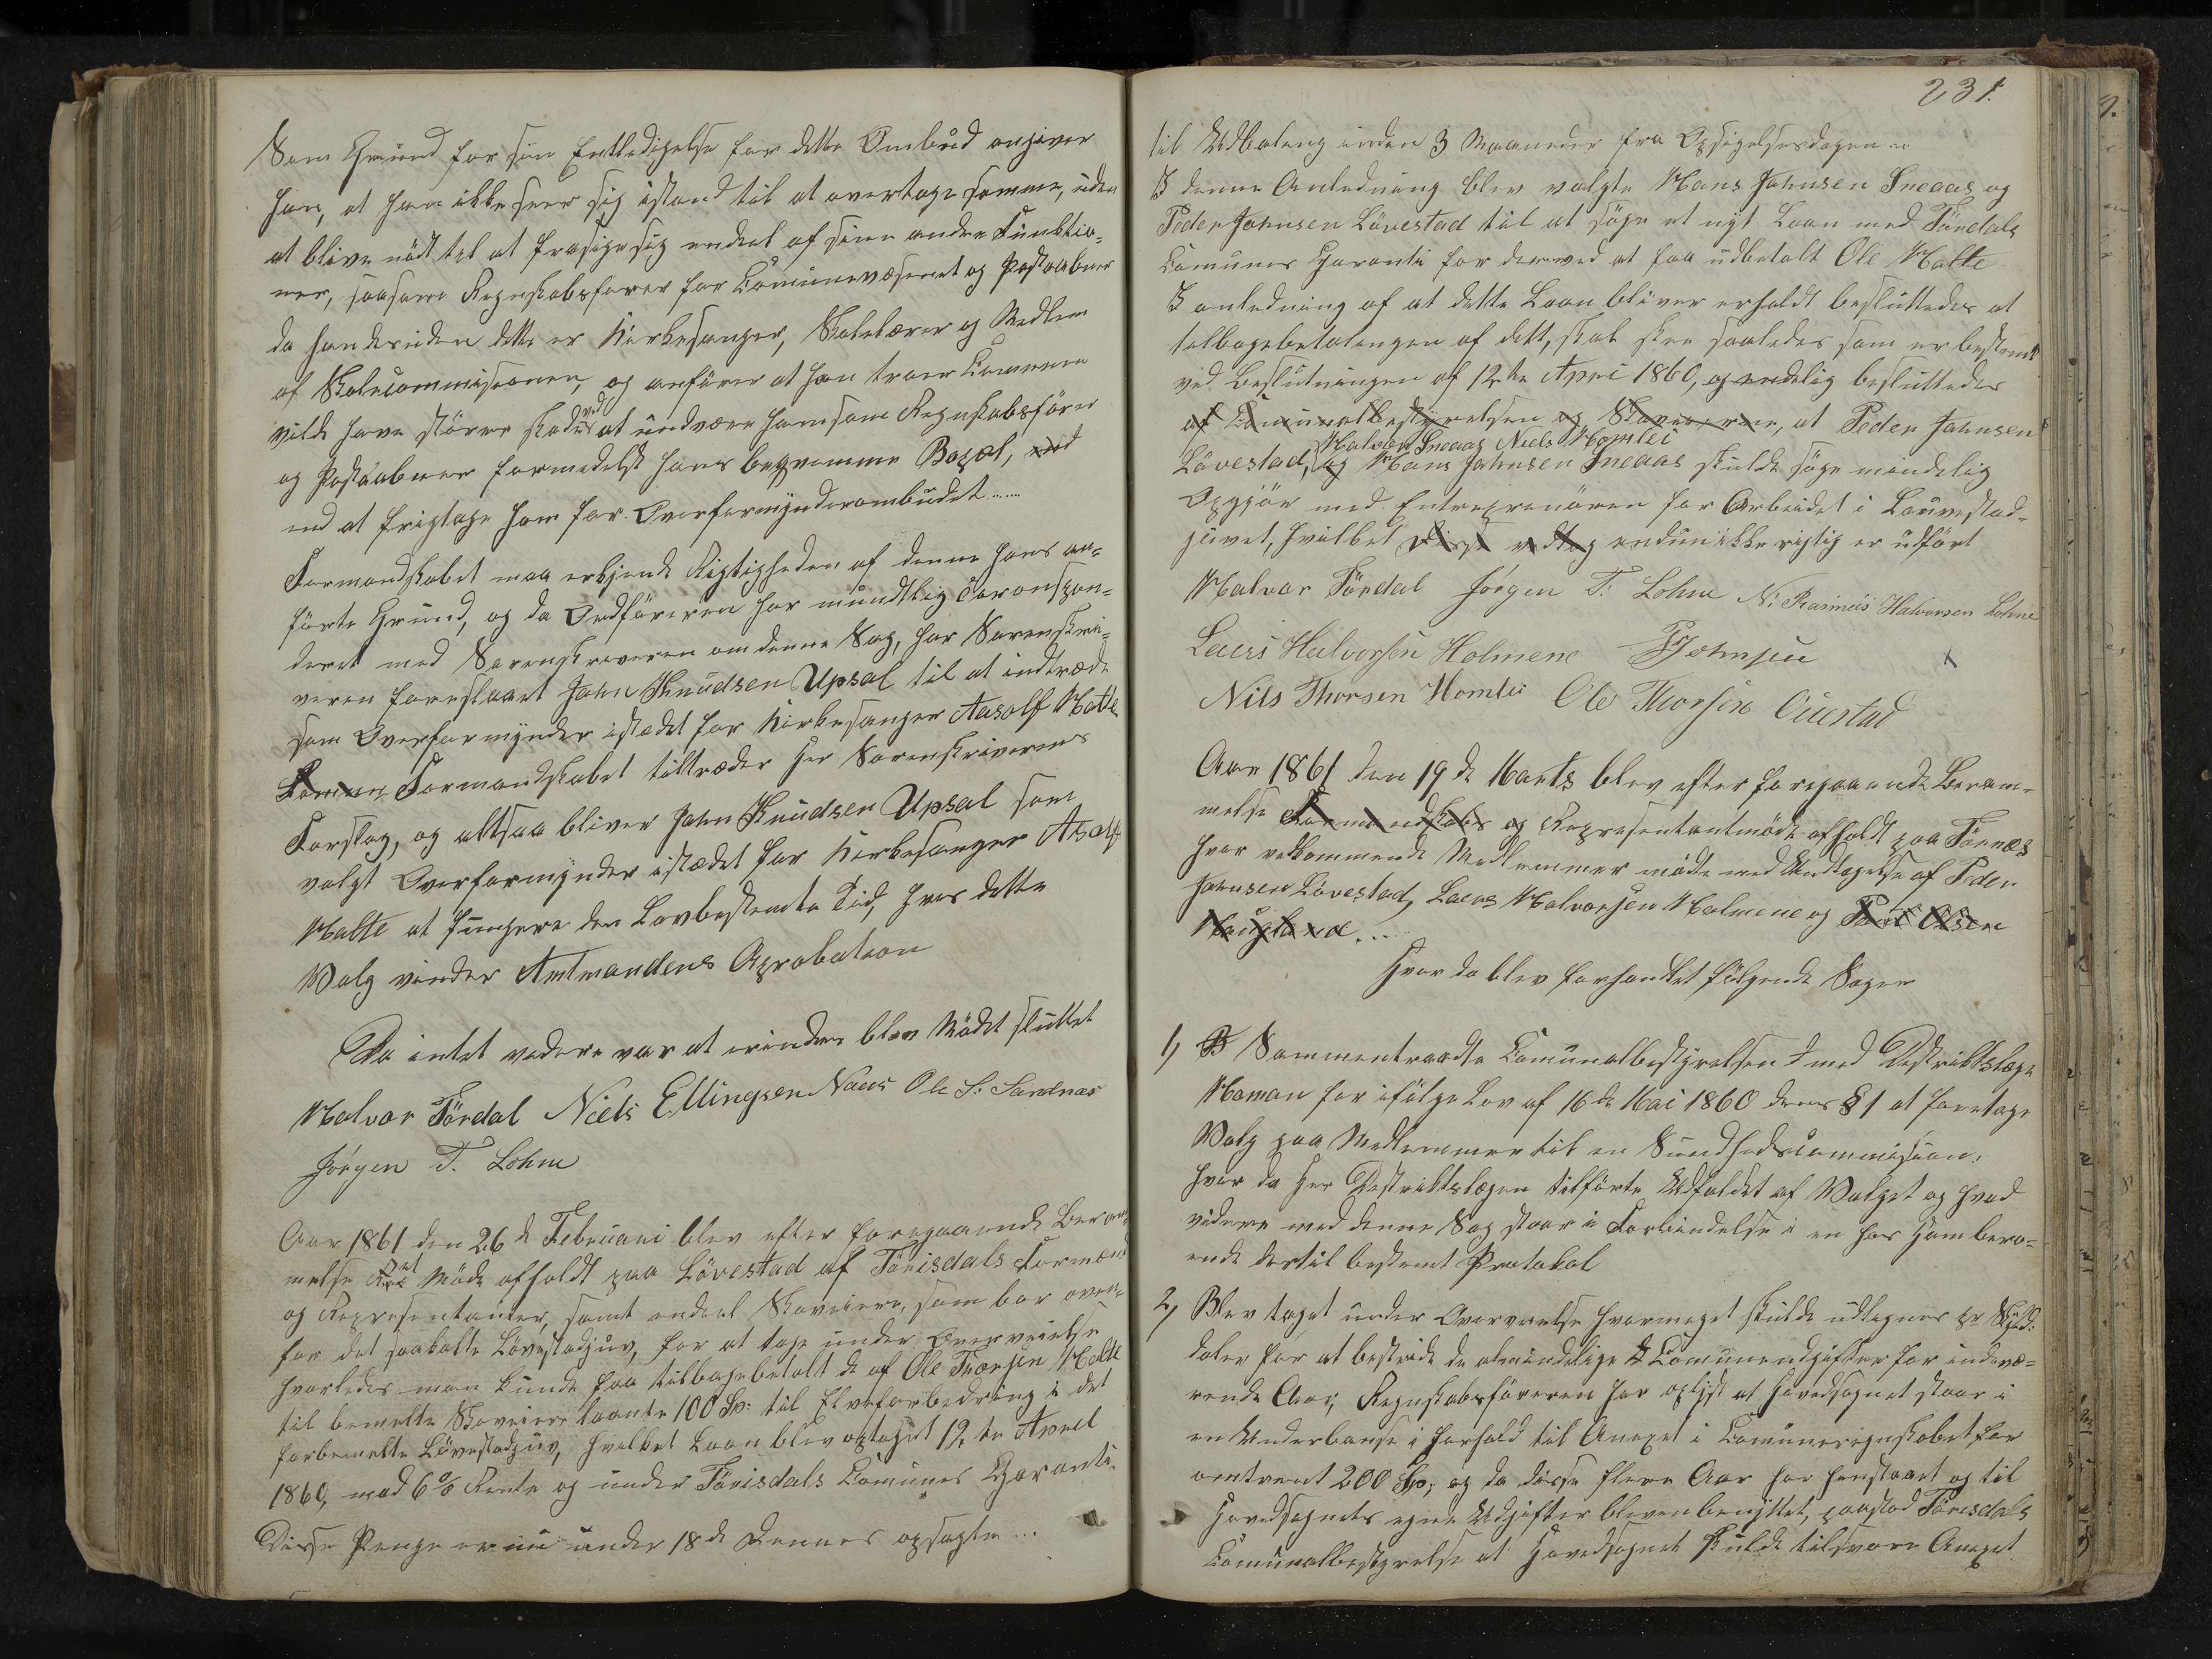 Som Grund for sin Entledigelse for dette Ombud angiver
han, at han ikke seer sig istand til at overtage samme, uden
at blive nödt til at frasige sig endeel af sine andre Funktio=
ner, saasom Regnskabsförer for Comunevæsenet og Postaabner
da han desuden dette er Kirkesanger, Skolelærer og Medlem
af Skolecommisionen, og anförer at han troer Comunen
vilde have större skade ved at undvære ham som Regnskabsförer
og Postaabner formedelst hans beqvemme Bopæl, end
end at fritage ham for Overformynderombudet ......
Formandskabet maa erkjende Rigtigheden af denne hans an=
förte Grund, og da Ordföreren har mundtlig Coronspon=
deret med Sorenskriveren om denne Sag, har Sorenskri=
veren foreslaaet John Knudsen Upsal til at indtræde
som Overformynder istædet for Kirkesanger Aasolf Hatte
Formandskabet tiltræder Her Sorenskriverens
Forslag, og altsaa bliver John Knudsen Upsal som
valgt Overformynder istædet for Kirkesanger Asolf
Hatte at fungere den Lovbestemte Tid, hvis dette
Valg vinder Amtmandens Aprobation
Da intet videre var at erindre blev Mödet sluttet
Halvor Tördal Niels Ellingsen Naes Ole S. Sandnæs
Jörgen T. Lohne
Aar 1861 den 26de Februari blev efter foregaaende Beram=
melse Möde afholdt paa Lövestad af Törisdals Formænd
og Representanter, samt endeel Skoveiere, som bor oven=
for det saakalte Lövestadjuv, for at tage under Overveielse
hvorledes man kunde faa tilbagebetalt de af Ole Thorsen Hatte
til bemelte Skoveiere laante 100 Sp: til Elveforbedring i det
forbemelte Lövestadjuv, hvilket Laan blev optaget 12te April
1860, mod 6% Rente og under Törisdals Comunes Garanti.
Disse Penge er nu under 18de Dennes opsagte ...
231.
til Udbetaling inden 3 Maaneder fra Opsigelsesdagen ...
I denne Anledning blev valgte Hans Johnsen Sneaas og
Peder Johnsen Lövestad til at söge et nyt Laan med Tördals
Comunes Garanti for derved at faa udbetalt Ole Hatte
I anledning af at dette Laan bliver erholdt besluttedes at
tilbagebetalingen af dett, skal skee saaledes som er bestemt
ved Beslutningen af 12te April 1860, og endelig besluttedes
af Comunalbestyrelsen og Skoveierne, at Peder Johnsen
Halvor Sneaas Niels Homlei
Lövestad, og Hans Johnsen Sneaas skulde söge mindelig
Opgjör med Entreprenören for Arbeidet i Lövestad=
juvet, hvilket endnu ikke rigtig er udfört
Halvor Tördal Jörgen T. Lohne N: Rasmus Halvorsen Lohne
Laers Halvorsen Holmene PJohnsen
Nils Thorsen Homlei Ole Thorsen Öiestad
Aar 1861 den 19de Marts blev efter foregaaende Beram=
melse Formandskabs og Representantmöde afholdt paa Töenæs
hvor vedkommende Medlemmer mödte med Undtagelse af Peder
Johnsen Lövestad, Laers Halvorsen Holmene og Olsen
Haugland ...
Hvor da blev forhandlet fölgende Sager
1, Sammentraadte Comunalbestyrelsen med Distriktslæge
Homan for ifölge Lov af 16de Mai 1860 dens §1 at foretage
Valg paa Medlemmer til en Sundhedscommision,
hvor da Her Distriktslægen tilförte Udfaldet af Valget og hvad
videre med denne Sag staar i Forbindelse i en hos Ham bero=
ende dertil bestemt Protokol
2, Blev taget under Overveielse hvormeget skulde udlignes pr Skyld:
daler for at bestride de almindelige Comuneudgifter for indevæ=
rende Aar, Regnskabsföreren har oplyst at Hovedsognet staar i
en Underbanse i forhold til Anexet i Comuneregnskabet for
omtrent 200 Sp; og da disse flere Aar har henstaaet og til
Hovedsognets egne Udgifter bleven benyttet, paastod Törisdals
Comunalbestyrelse at Hovedsognet skulde tilsvare Anexet